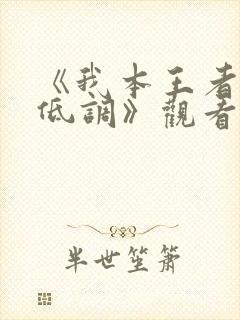 《我本王者
低調》觀看
半世笙簫